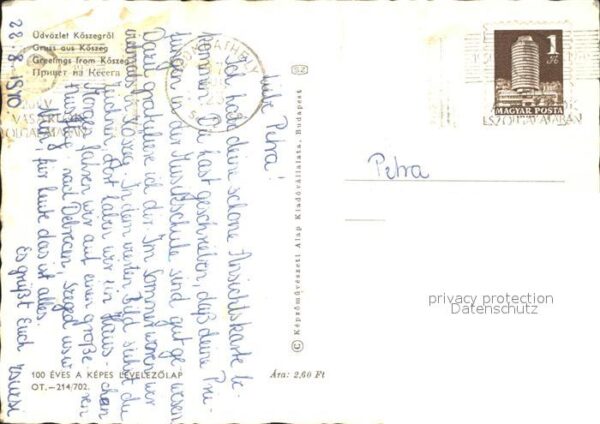 Üdvözlet Kőszegről
Gruss aus Kőszeg
Greetings from Kőszeg
Привет из Кёсега
22. 8. 1970
SZOMBATHELY
1 Ft
MAGYAR POSTA
SZ
Liebe Petra!
Ich habe deine schöne Ansichtskarte be-
kommen. Du hast geschrieben, daß deine Prü-
fungen in der Musikschule sind gut gewesen.
Dazu gratuliere ich dir. Im Sommer waren wir
in Kőszeg. In dem vierten Bild siehst du
Dort haben wir ein Häuschen.
Morgen fahren wir auf einen größeren
nach Debrecen, Szeged usw.
für heute das ist alles.
Es grüßt Euch Zsuzsi
Petra
© Képzőművészeti Alap Kiadóvállalata, Budapest
100 ÉVES A KÉPES LEVELEZŐLAP
OT.—214/702.
Ára: 2,60 Ft
privacy protection
Datenschutz